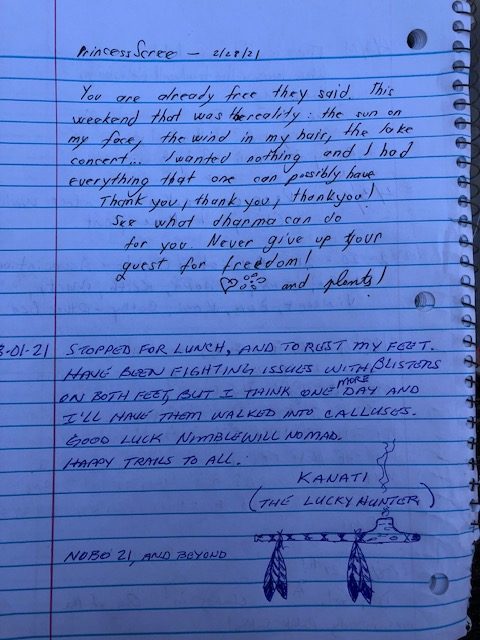 Princess Scree — 2/28/21
You are already free they said. This
weekend that was the reality: the sun on
my face, the wind in my hair, the lake
concert... I wanted nothing and I had
everything that one can possibly have
Thank you, thank you, thank you!
See what dharma can do
for you. Never give up your
quest for freedom!
and plants!
3-01-21 STOPPED FOR LUNCH, AND TO REST MY FEET.
HAVE BEEN FIGHTING ISSUES WITH BLISTERS
ON BOTH FEET, BUT I THINK ONE MORE DAY AND
I'LL HAVE THEM WALKED INTO CALLUSES.
GOOD LUCK NIMBLEWILL NOMAD.
HAPPY TRAILS TO ALL.
KANATI
(THE LUCKY HUNTER)
NOBO 21, AND BEYOND